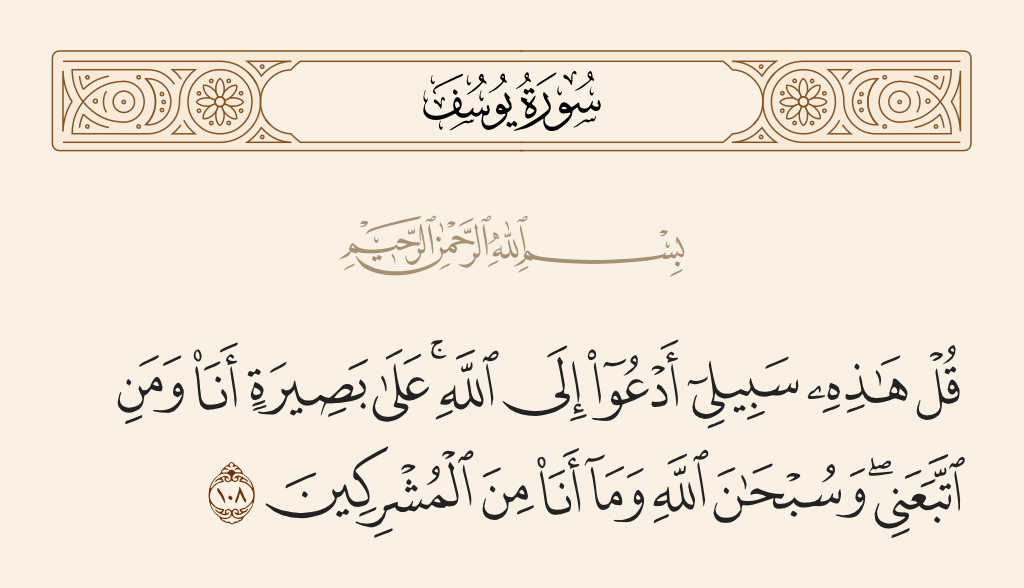 سُورَةُ يُوسُفَ
بِسْمِ ٱللَّهِ ٱلرَّحْمَٰنِ ٱلرَّحِيمِ
قُلْ هَٰذِهِۦ سَبِيلِىٓ أَدْعُوٓا۟ إِلَى ٱللَّهِ ۚ عَلَىٰ بَصِيرَةٍ أَنَا۠ وَمَنِ
ٱتَّبَعَنِى ۖ وَسُبْحَٰنَ ٱللَّهِ وَمَآ أَنَا۠ مِنَ ٱلْمُشْرِكِينَ ١٠٨